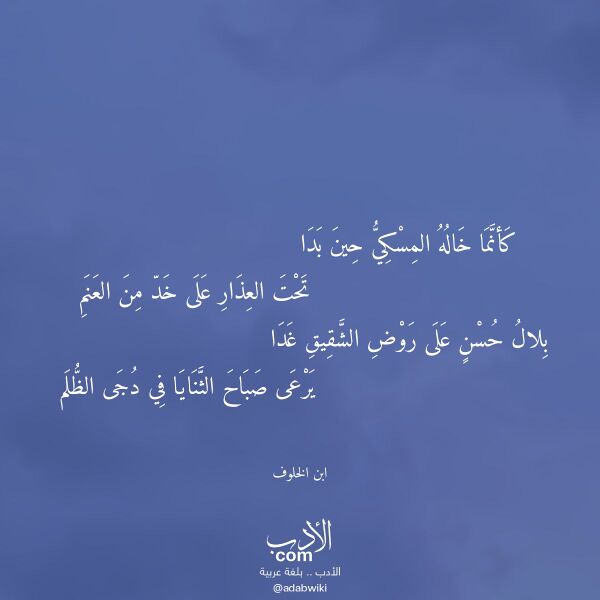 كَأَنَّمَا خَالُهُ المِسْكِيُّ حِينَ بَدَا
تَحْتَ العِذَارِ عَلَى خَدّ مِنَ العَنَمِ
بِلالُ حُسْنٍ عَلَى رَوْضِ الشَّقِيقِ غَدَا
يَرْعَى صَبَاحَ الثَّنَايَا فِي دُجَى الظُّلَم
ابن الخلوف
الأدب
com
الأدب .. بلغة عربية
@adabwiki